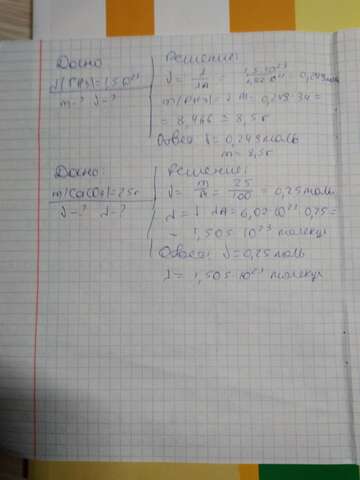 Дано
N(PH3)=1,5·10²³
m-? ν-?
Решение:
ν = N/NA = 1,5·10²³/6,02·10²³ = 0,249моль
m(PH3)= ν·M= 0,249·34=
= 8,466 ≈ 8,5г
Ответ: ν=0,249моль
m= 8,5г
Дано:
m(CaCO3)=25г
ν-? N-?
Решение:
ν= m/M = 25/100 = 0,25моль
N= ν·NA=6,02·10²³·0,25=
= 1,505·10²³ молекул
Ответ: ν=0,25моль
N= 1,505·10²³ молекул